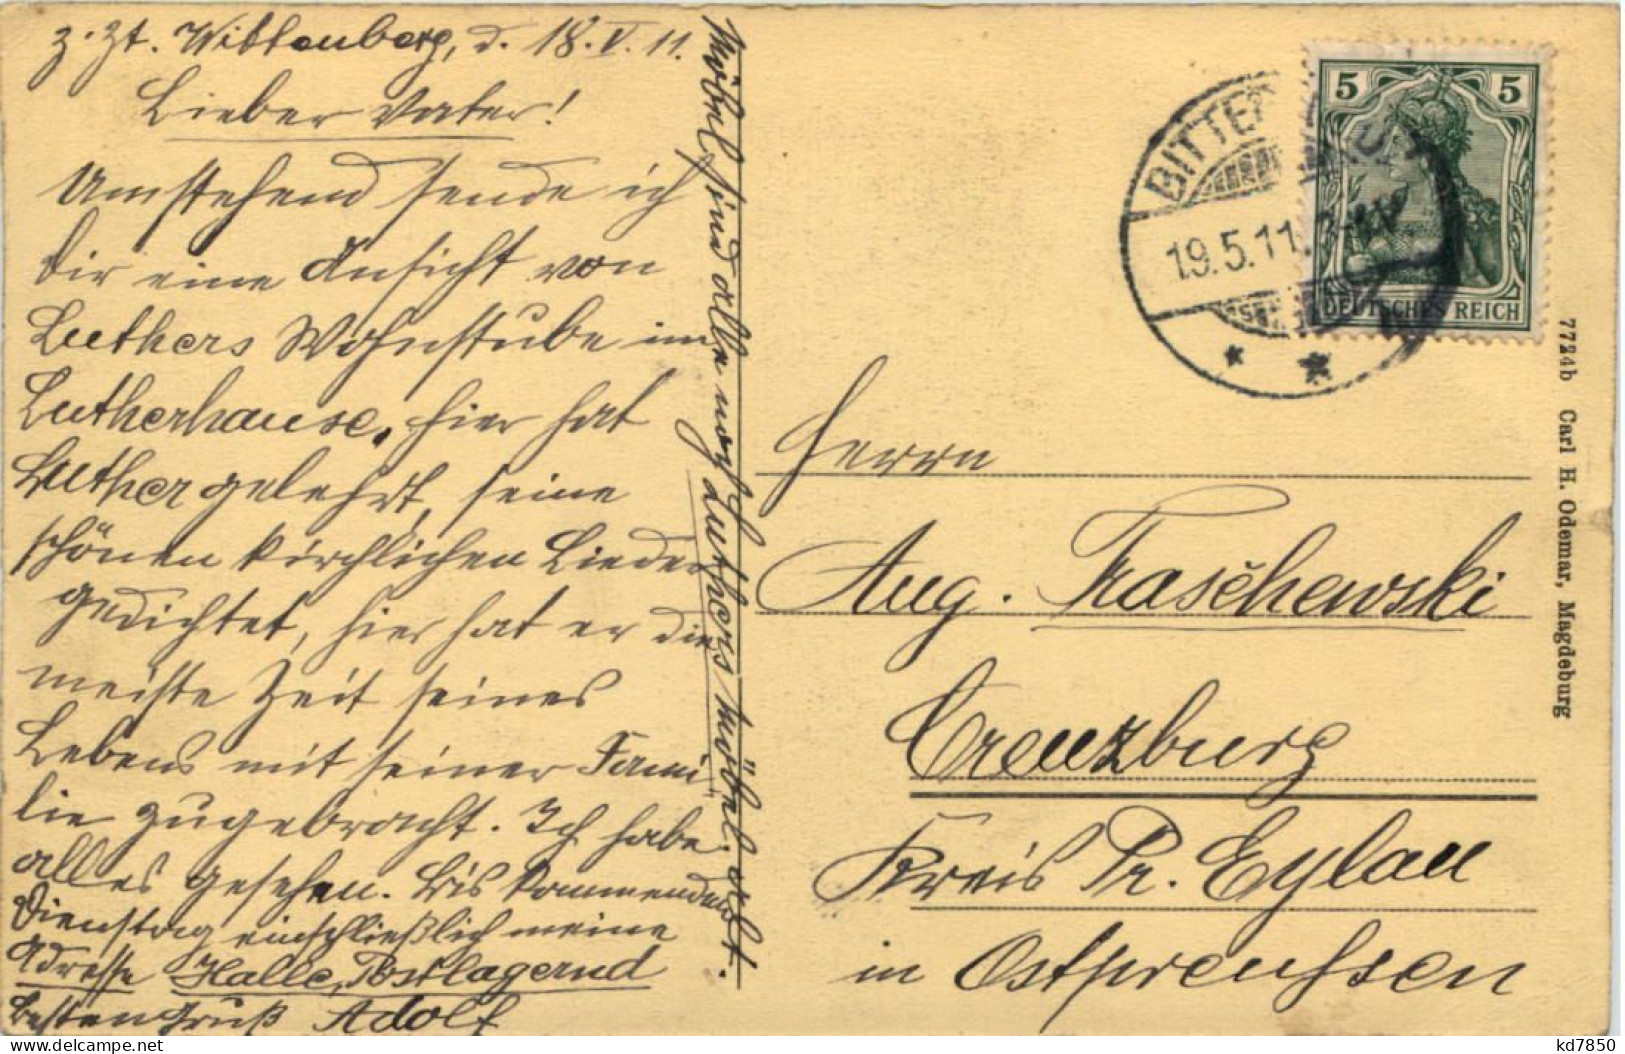 z. Zt. Wittenberg, d. 18.V.11.
Lieber Vater!
Umstehend sende ich
Dir eine Ansicht von
Luthers Wohnstube im
Lutherhause, hier hat
Luther gelehrt, seine
schönen kirchlichen Lieder
gedichtet, hier hat er die
meiste Zeit seines
Lebens mit seiner Fami
lie zugebracht. Ich habe
alles gesehen. Bis kommenden
Dienstag einschließlich meine
Adresse Halle, Postlagernd
Besten Gruß Adolf
Möbel sind alle noch Luthers Möbel.
BITTERF
19.5.11.
5 5
DEUTSCHES REICH
Herrn
Aug. Traschewski
Creuzburg
Kreis Pr. Eylau
in Ostpreussen
7724b Carl H. Odemar, Magdeburg
delcampe.net
kd7850